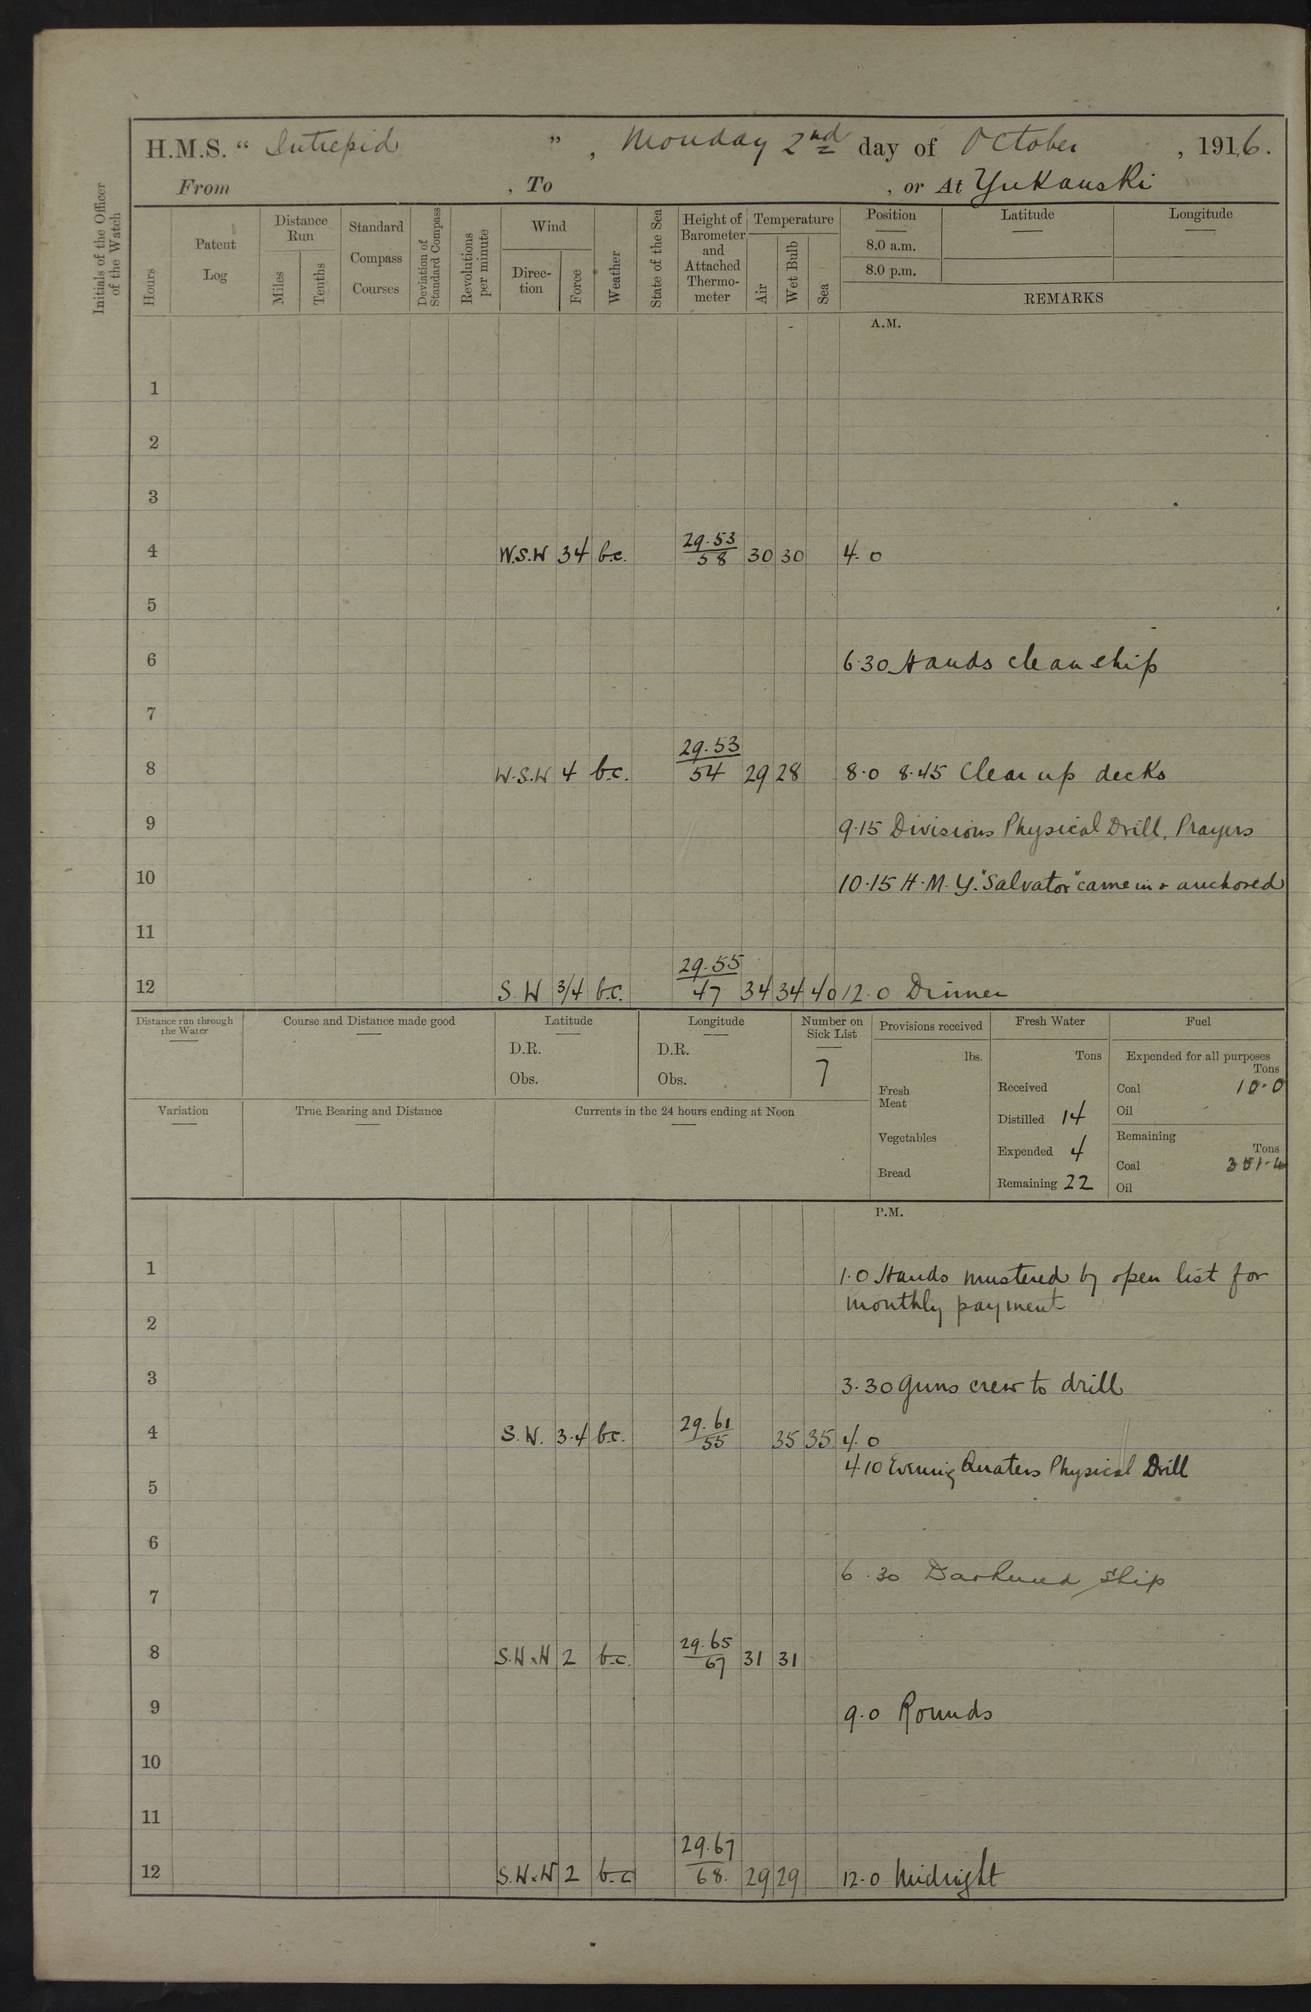 H.M.S. “ Intrepid ” , Monday 2nd day of October , 1916.
From , To , or At Yukanski
Initials of the Officer of the Watch
Hours
Patent Log
Distance Run
Miles
Tenths
Standard Compass Courses
Deviation of Standard Compass
Revolutions per minute
Wind
Direc-tion
Force
Weather
State of the Sea
Height of Barometer and Attached Thermo-meter
Temperature
Air
Wet Bulb
Sea
Position
8.0 a.m.
8.0 p.m.
Latitude
Longitude
REMARKS
A.M.
1
2
3
4 W.S.W 34 b.c. 29.53/58 30 30 4. 0
5
6 6.30 Hands clean ship
7
8 W.S.W 4 b.c. 29.53/54 29 28 8.0 8.45 Clear up decks
9 9.15 Divisions Physical Drill, Prayers
10 10.15 H.M.Y. "Salvator" came in & anchored
11
12 S.W 3/4 b.c. 29.55/47 34 34 40 12.0 Dinner
Distance run through the Water
Course and Distance made good
Latitude
D.R.
Obs.
Longitude
D.R.
Obs.
Number on Sick List
7
Provisions received
lbs.
Fresh Meat
Vegetables
Bread
Fresh Water
Tons
Received
Distilled 14
Expended 4
Remaining 22
Fuel
Expended for all purposes
Tons
Coal 10.0
Oil
Remaining
Tons
Coal
Oil
Variation
True Bearing and Distance
Currents in the 24 hours ending at Noon
P.M.
1 1.0 Hands mustered by open list for
monthly payment
2
3 3.30 Guns crew to drill
4 S.W. 3.4 b.c. 29.61/55 35 35 4. 0
4 10 Evening Quaters Physical Drill
5
6
6.30 Darkened ship
7
8 S.W.xW 2 b.c. 29.65/67 31 31
9 9.0 Rounds
10
11
12 S.W.xW 2 b.c 29.67/68. 29 29 12.0 Midnight